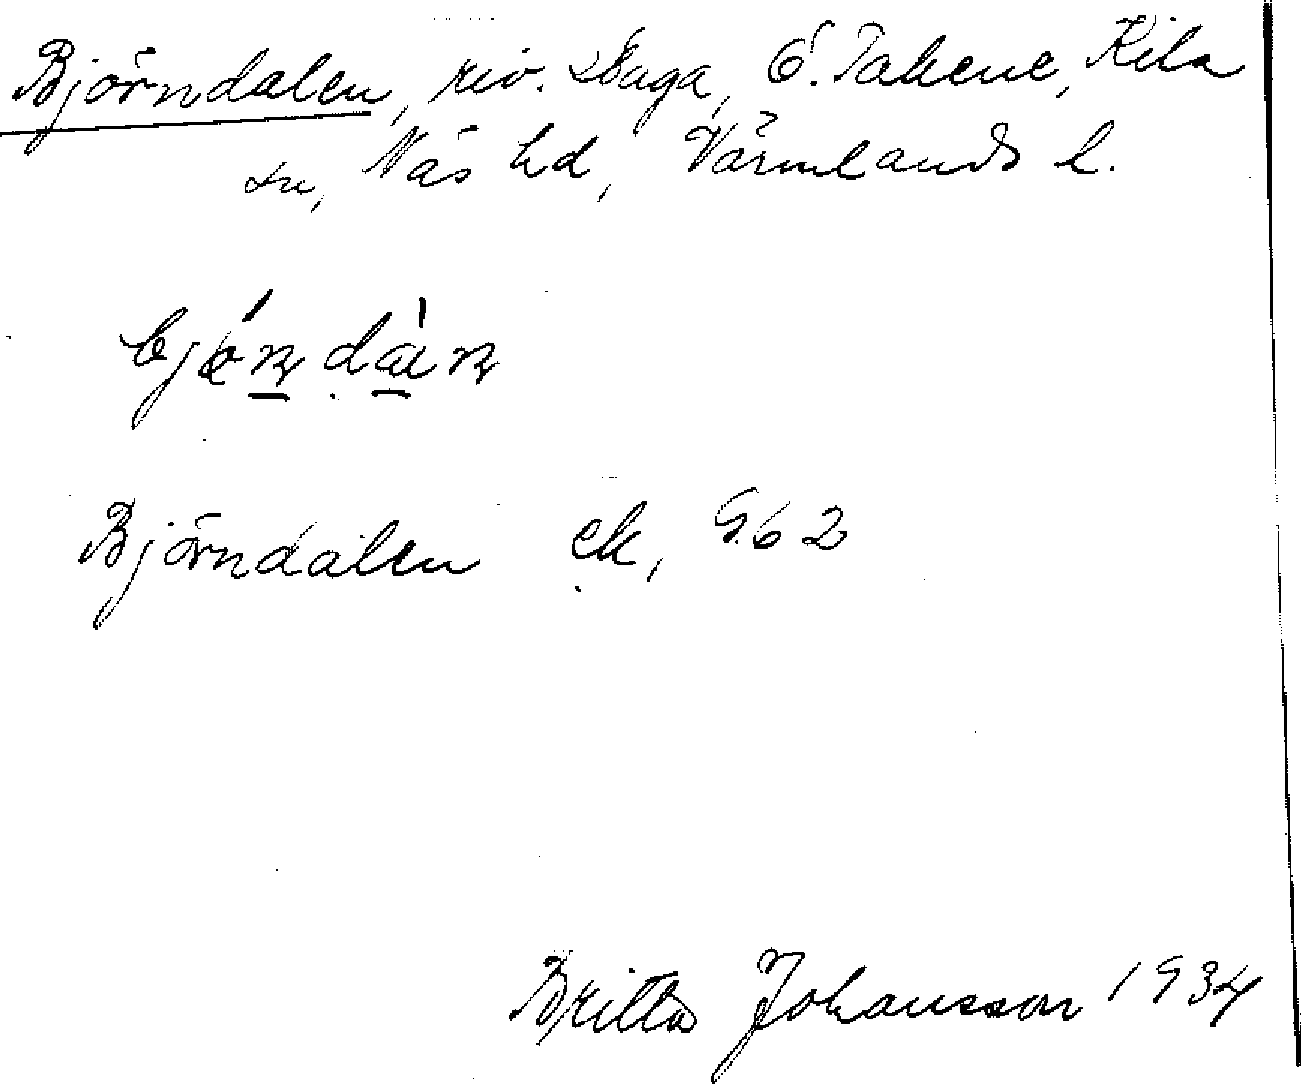 Björndalen, riv. Stuga, Ö. Takene, Kila
sn, Näs hd, Värmlands l.
Björndalen ek, G. 62
Britta Johansson 1934